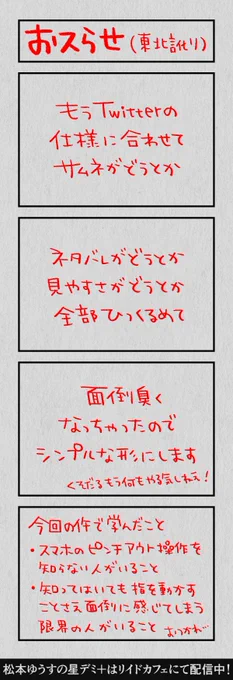 おスらせ(東北訛り)
もうTwitterの
仕様に合わせて
サムネがどうとか
ネタバレがどうとか
見やすさがどうとか
全部ひっくるめて
面倒臭く
なっちゃったので
シンプルな形にします
くそだるもう何もやる気しねえ!
今回の件で学んだこと
・スマホのピンチアウト操作を
知らない人がいること
・知ってはいても指を動かす
ことさえ面倒に感じてしまう
限界の人がいること おつかれ…
松本ゆうすの星デミ+はリイドカフェにて配信中!